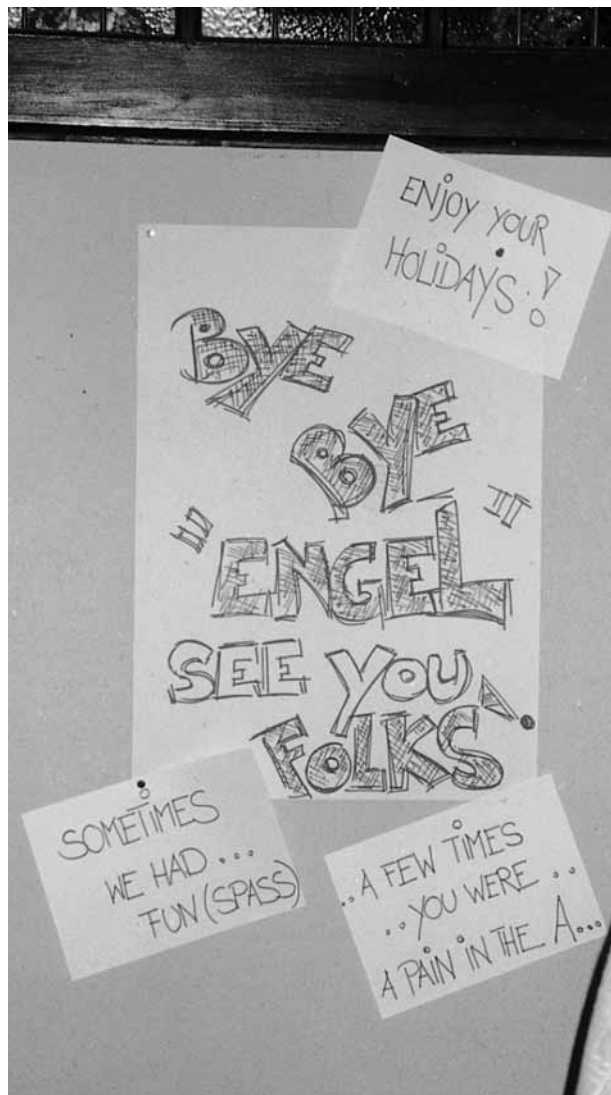 ENJOY YOUR
HOLIDAYS!
BYE
BYE
"ENGEL"
SEE YOU
FOLKS
SOMETIMES
WE HAD...
FUN (SPASS)
..A FEW TIMES
..YOU WERE..
A PAIN IN THE A...